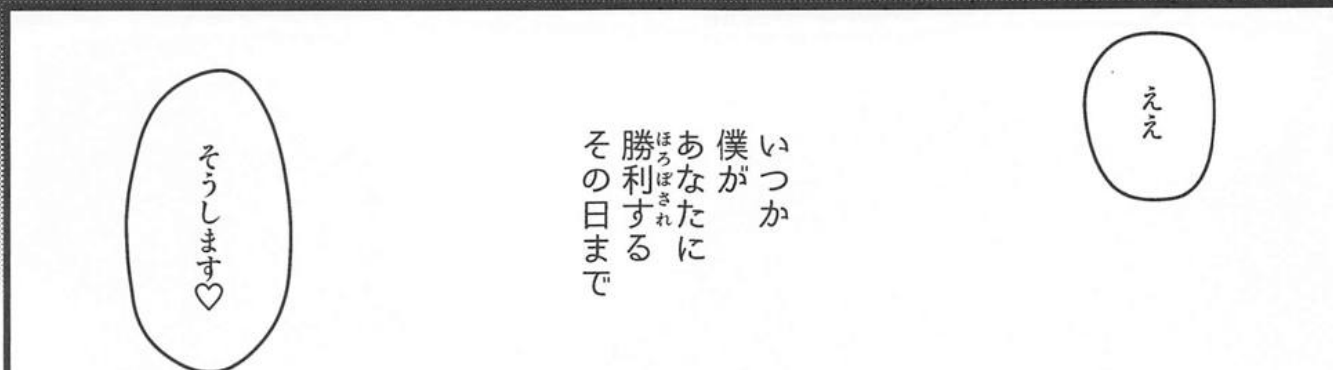 ええ
いつか
僕が
あなたに
勝利する
ほろぼされ
その日まで
そうします♡